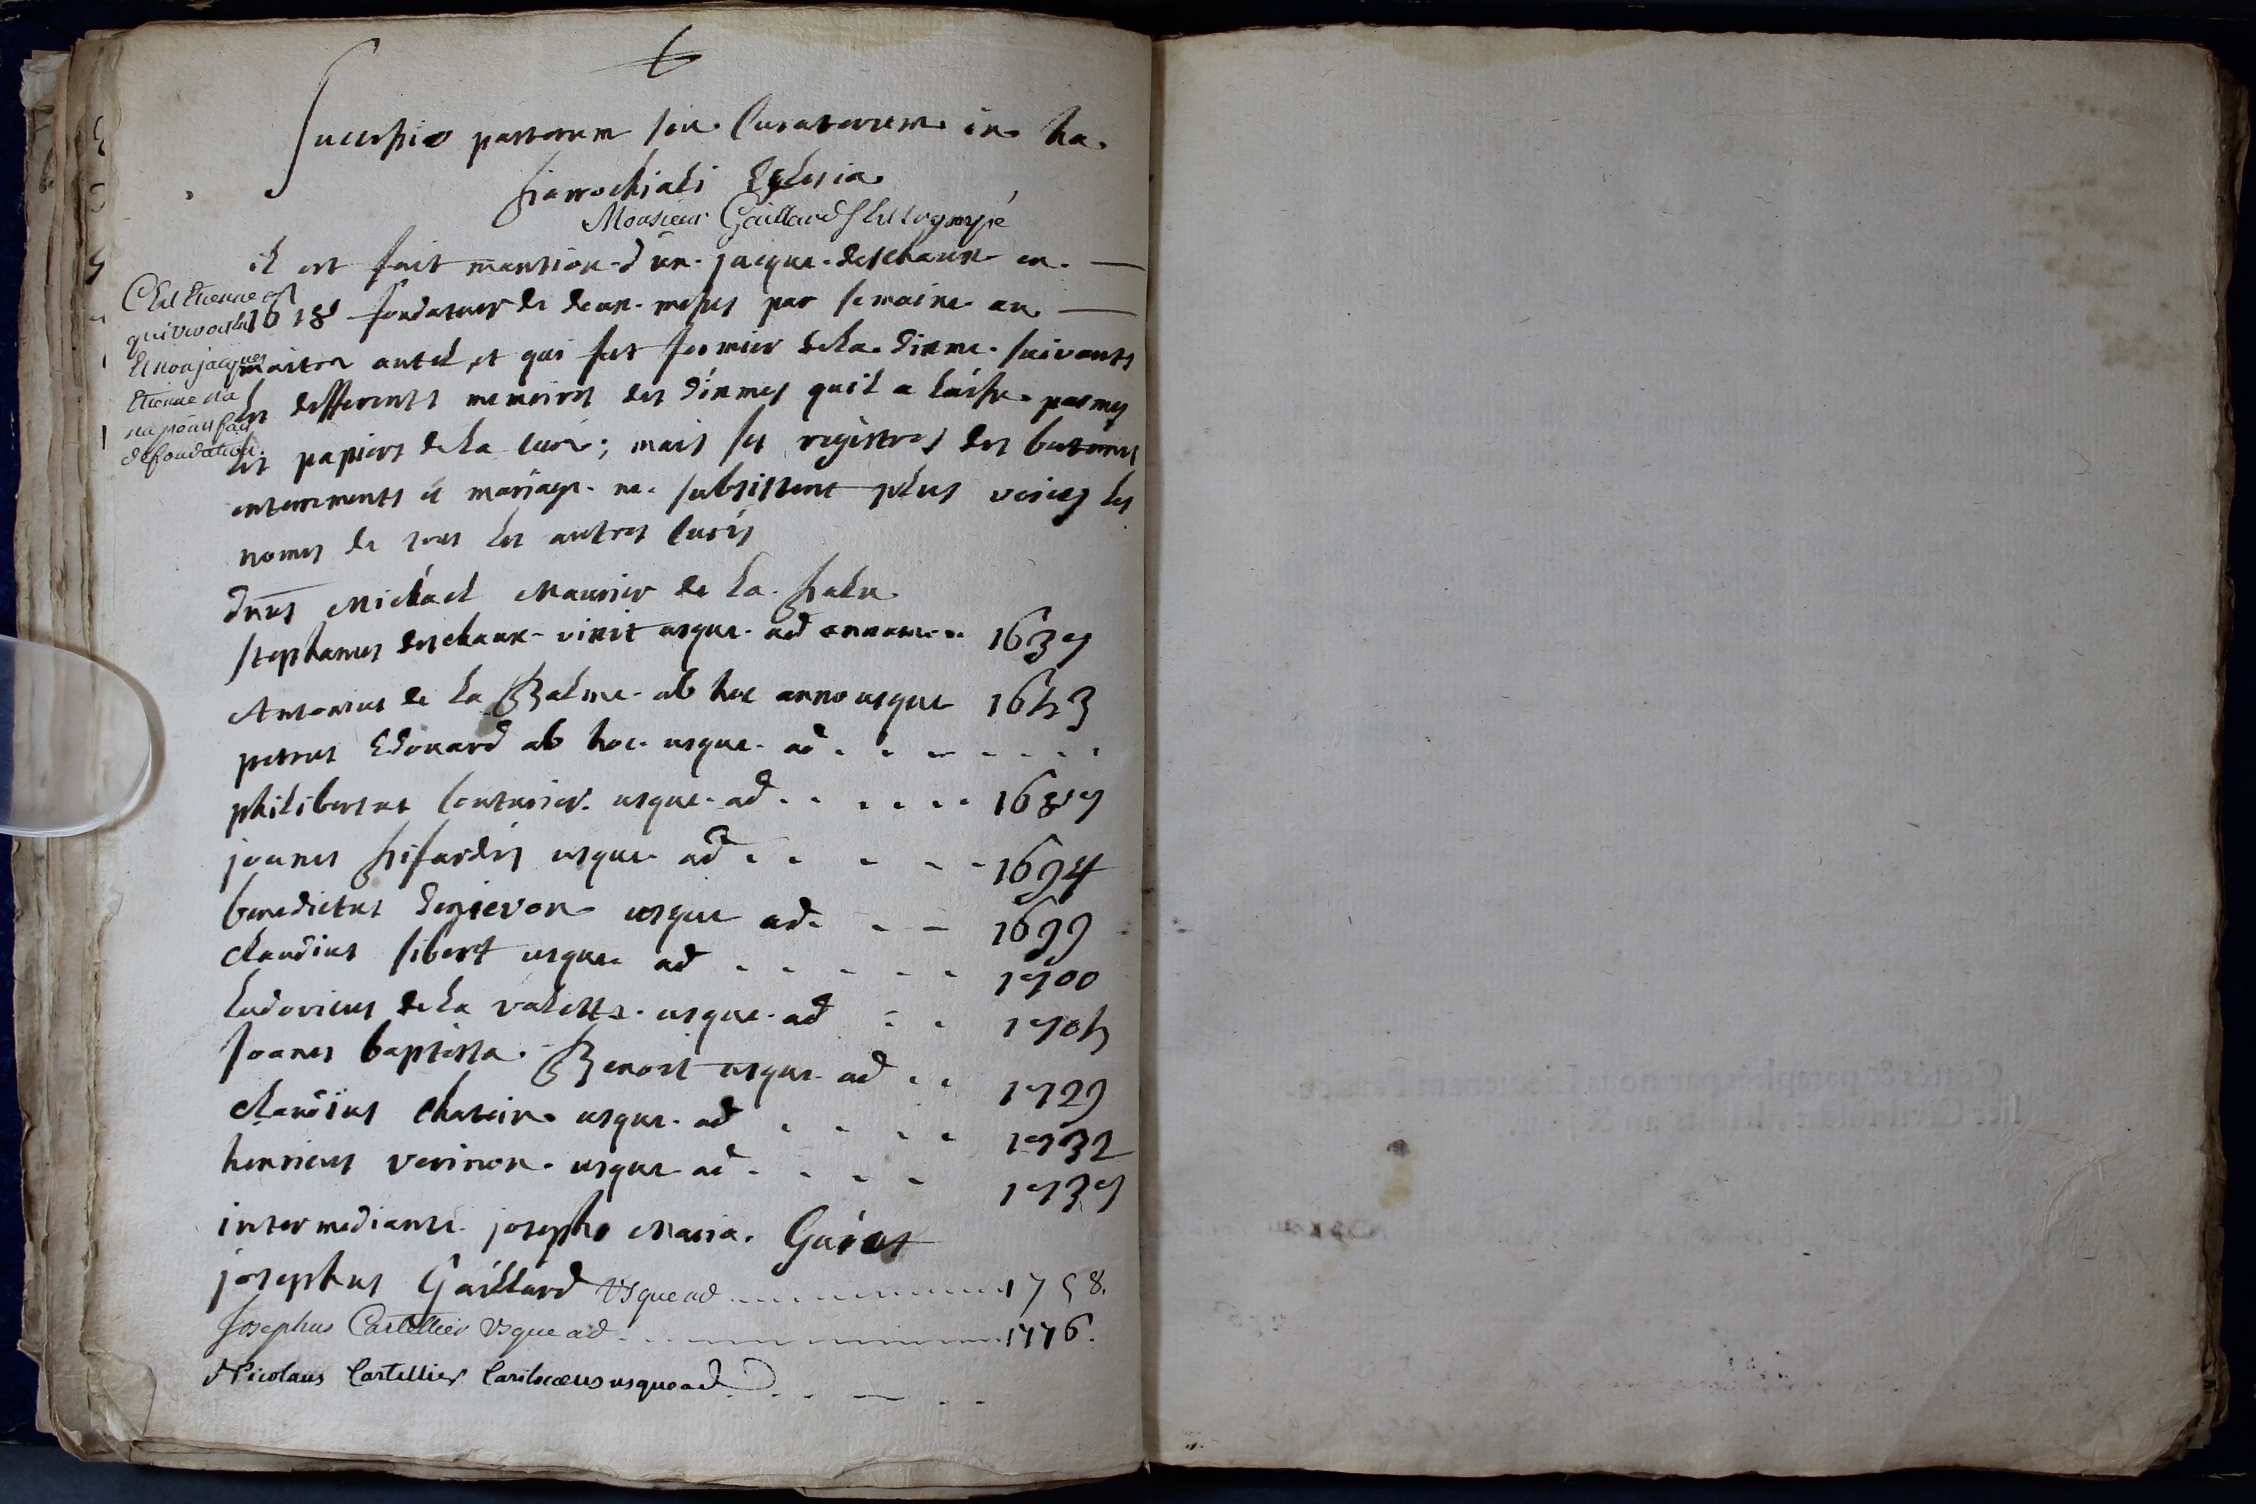 Successio pastorum seu Curatorum in hac
parrochiali Eglesia
Monsieur Gaillard s'est trompé
il est fait mantion d'un jacque deschaux en
1618 fondateur de deux messes par semaine au
maitre autel et qui fut fermier de la dixme suivants
les defferents memoires des dixmes quil a laissé parmy
les papiers de la cure; mais les registres des batemes
enterrements et mariage ne subsistent plus voicy les
nomes de tous les autres curés
C'est Etienne
qui vivoit
Et non jacques
Etienne
na point fait
de fondation.
dnus Michael Maurier de la
stephanus deschaux vixit usque ad annum 1637
Antonius de la Balme ab hoc anno usque 1643
petrus Edouard ab hoc usque ad
philibertus Couturier usque ad 1687
joannes pifardy usque ad 1694
benedictus usque ad 1699
claudius sibert usque ad 1700
Ludovicus de la valette usque ad 1704
Joanes baptista Benoit usque ad 1729
claudius chatein usque ad 1732
henricus usque ad 1737
intermediante josepho Maria
josephus Gaillard Usque ad 1758.
Josephus Cartellier Usque ad 1776.
Nicolaus Cartellier usque ad